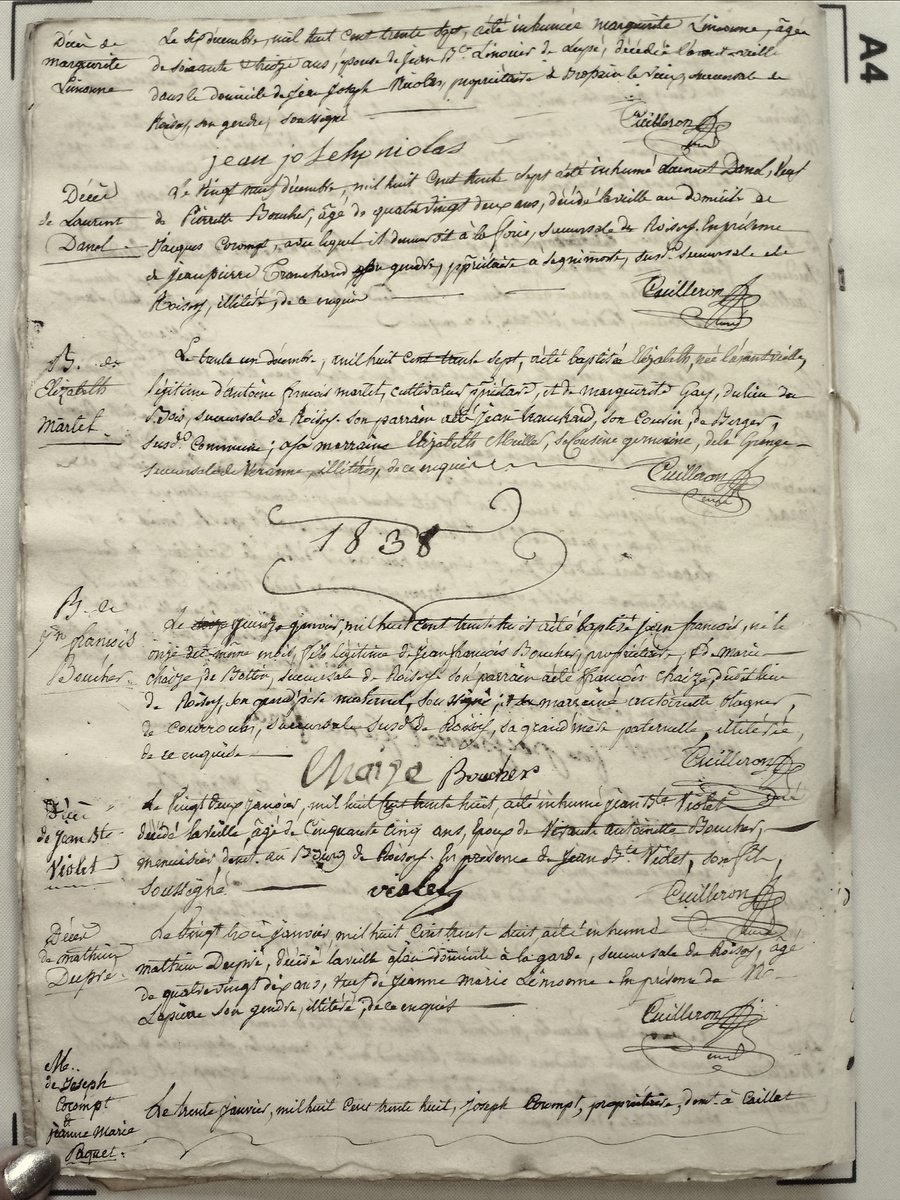 Décès de
marguerite
Limonne
Le six décembre, mil huit cent trente sept, a été inhumée marguerite Limonne, âgée
de soixante treize ans, épouse de jean Bte Limousin de Lupé, décédée l'avant-veille
dans le domicile de jean Joseph Nicolas, propriétaire à succursale de
Roisey, son gendre, soussigné
Cuilleron
curé
jean joseph niolas
Décès
de Laurent
Danol
Le Vingt neuf décembre, mil huit cent trente sept a été inhumé Laurent Danol, Veuf
de Pierrette Boucher, âgé de quatre vingt deux ans, décédé la veille au domicile de
Jacques Corompt, avec lequel il demeurait à la succursale de Roisey. En présence
de jean pierre Tranchand gendre, pptaire à succursale de
Roisey, illitéré, de ce enquis
Cuilleron
curé
B. de
Elizabeth
Martel
Le trente un décembre, mil huit cent trente sept, a été baptisée Elizabeth, née l'avant veille,
légitime d'antoine francois martel, cultivateur pptaire, et de marguerite Gay, du lieu du
Bois, succursale de Roisey. son parrain a été Jean tranchand, son Cousin, de Berger,
susd. Commune; a sa marraine Elizabeth sa Cousine germaine, de la Grange
succursale de Veranne, illitérés, de ce enquis
Cuilleron
curé
1838
B. de
jn francois
Boucher
Le quinze janvier, mil huit cent trente huit a été baptisé jean francois, né le
onze du même mois, fils légitime de Jean francois Boucher, propriétaire, et de marie
chaize, de Batin, succursale de Roisey. son parrain a été francois chaize, du dit lieu
de Roisey, son grand père maternel, soussigné; et sa marraine antoinette
de succursale susde de Roisey, sa grand mère paternelle, illitérée,
de ce enquise
Cuilleron
curé
Chaize Boucher
Décès
de Jean Bte
Violet
Le Vingt deux janvier, mil huit cent trente huit, a été inhumé jean Bte Violet
décédé la veille, âgé de Cinquante cinq ans, Epoux de antoinette Boucher,
menuisier demt. au Bourg de Roisey. En présence de Jean Bte Violet, son fils,
Soussigné
violet
Cuilleron
curé
Décès
de mathieu
Dupré
Le Vingt trois janvier, mil huit cent trente huit a été inhumé
mathieu Dupré, décédé la veille domicile à la garde, succursale de Roisey, âgé
de quatre vingt dix ans, Veuf de Jeanne marie Limonne. En présence de
Lapierre son gendre, illitéré, de ce enquis
Cuilleron
curé
M.
de Joseph
Corompt
et
jeanne Marie
Paquet
Le trente janvier, mil huit cent trente huit, Joseph Corompt, propriétaire, demt. à Caillet
A4